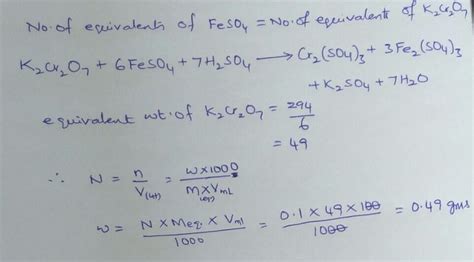 No. of equivalents of FeSO4 = No. of equivalents of K2Cr2O7
K2Cr2O7 + 6FeSO4 + 7H2SO4 ⟶ Cr2(SO4)3 + 3Fe2(SO4)3
+ K2SO4 + 7H2O
equivalent wt. of K2Cr2O7 = 294/6
= 49
∴ N = n/V(lit) = w×1000/m(eq)×VmL
w = N × Meq. × Vml/1000 = 0.1 × 49 × 100/1000 = 0.49 gms